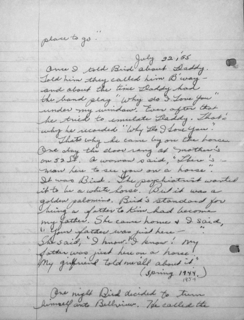 place to go."
July 22, '65
Once I told Bird about Daddy.
Told him they called him D'way -
and about the time Daddy had
the band play "Why do I Love You"
under my window. Even after that
he tried to emulate Daddy. That's
why he recorded "Why Do I Love You".
That's why he came by on the horse.
One day the door rang at "mother's
on 52 St. A woman said, "There's
man here to see you on a horse.
It was Bird. The psychiatrist wanted
it to be a white horse. But it was a
golden palomino. Bird's standard for
being a father to Kim had become
my father. She came home & I said,
"Your father was just here -"
She said, "I know! I know! My
father was just here on a horse!
My girlfriend told me all about it."
(Spring 1954,
One night Bird decided to turn
himself into Bellevue. He called the